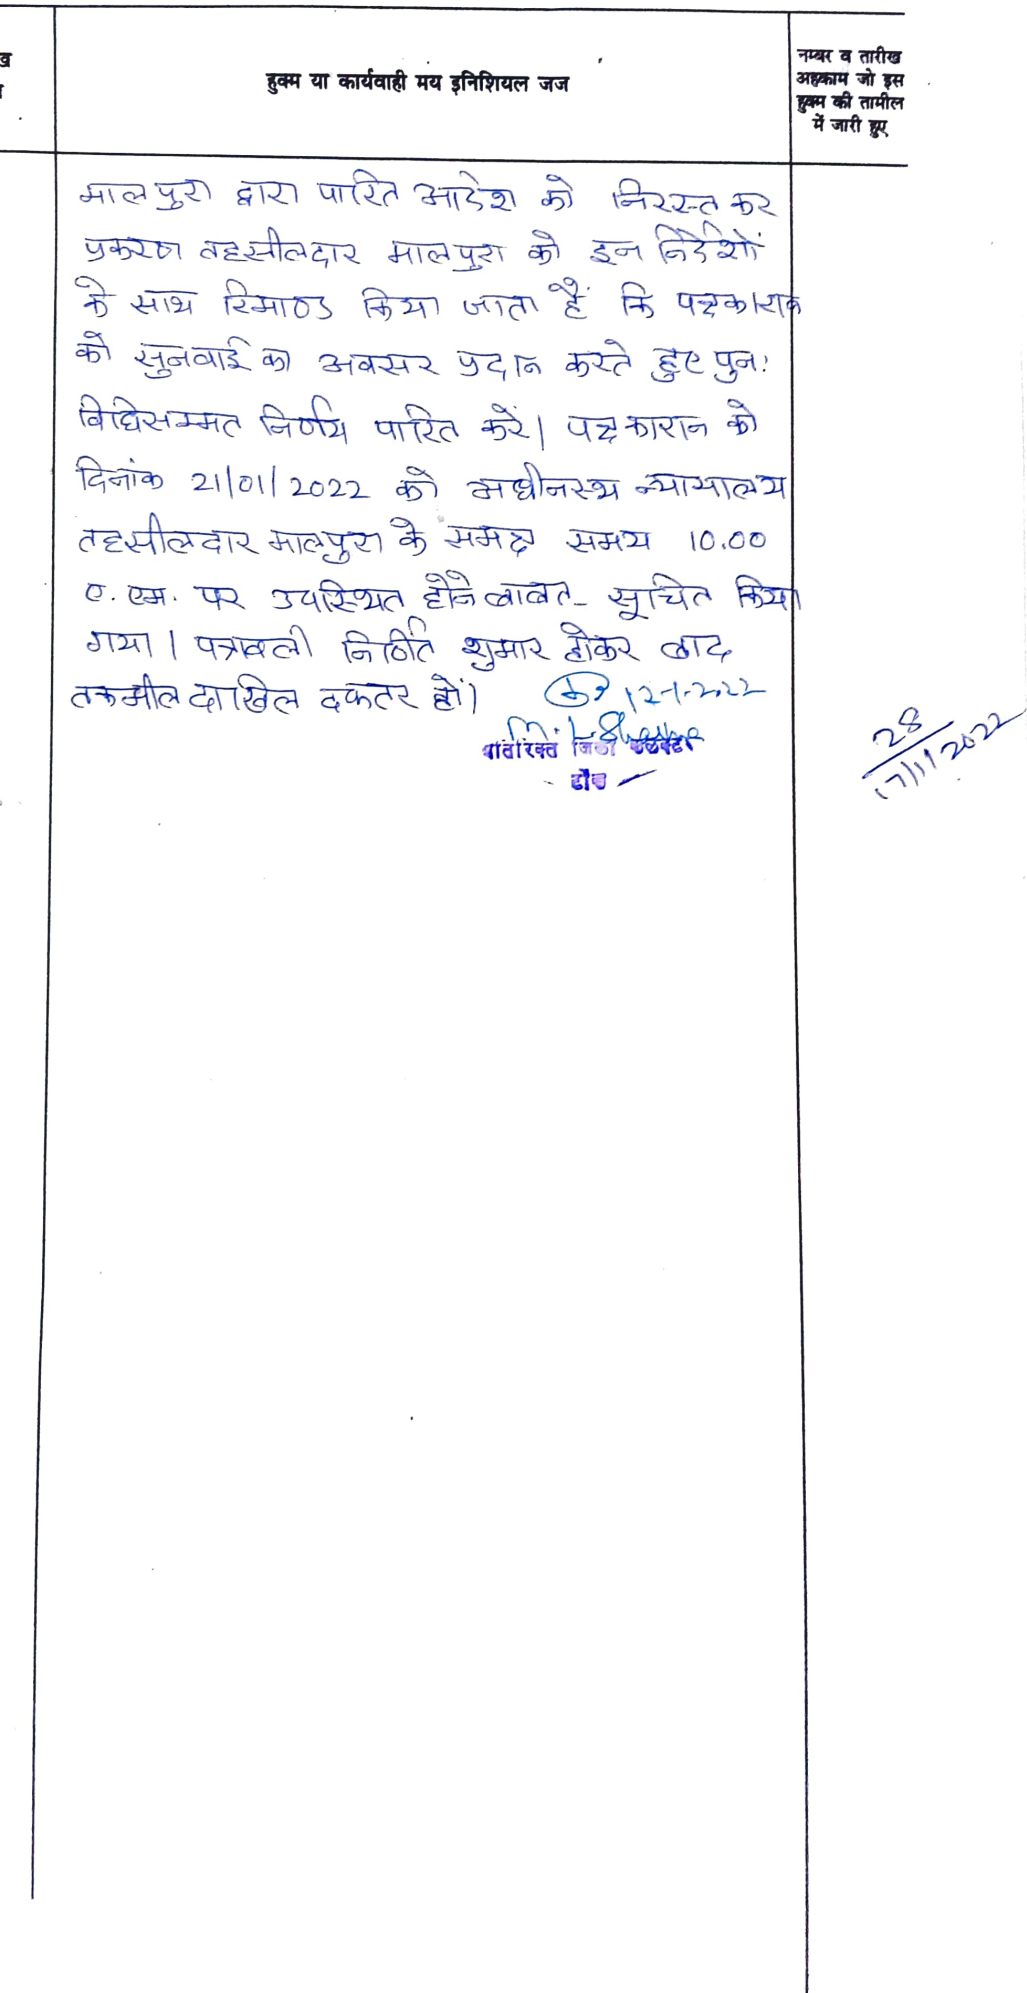 हुक्म या कार्यवाही मय इनिशियल जज
नम्बर व तारीख
अहकाम जो इस
हुक्म की तामील
में जारी हुए
मालपुरा द्वारा पारित आदेश को निरस्त कर
प्रकरण तहसीलदार मालपुरा को इन निर्देशों
के साथ रिमाण्ड किया जाता हैं कि पक्षकारान
को सुनवाई का अवसर प्रदान करते हुए पुन:
विधिसम्मत निर्णय पारित करें। पक्षकारान को
दिनांक 21/01/2022 को अधीनस्थ न्यायालय
तहसीलदार मालपुरा के समक्ष समय 10.00
ए.एम. पर उपस्थित होने बाबत सूचित किया
गया। पत्रावली निर्णीत शुमार होकर बाद
तकमील दाखिल दफतर हों।
12-1-2022
अतिरिक्त जिला कलक्टर
टोंक
28
17/1/2022